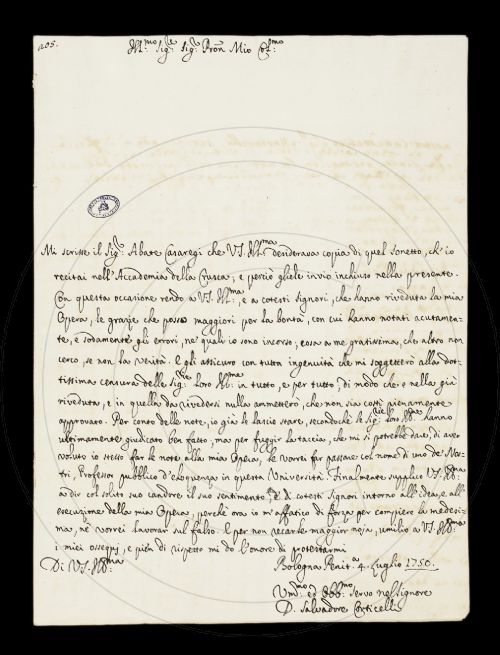 205.
Ill:mo Sig:r Sig:r Pron Mio Col:mo
Mi scrisse il Sig:r Abate Casaregi che V.S. Ill:ma desiderava copia di quel Sonetto, ch'io
recitai nell'Accademia della Crusca; e perciò gliele invio inchiuso nella presente.
Con questa occasione rendo a V.S. Ill:ma, e a cotesti Signori, che hanno riveduta la mia
Opera, le grazie che posso maggiori per la bontà, con cui hanno notati acutamen-
te, e sodamente gli errori, ne' quali io sono incorso; cosa a me gratissima, che altro non
cerco, se non la verità. E gli assicuro con tutta ingenuità che mi soggetterò alla dot-
tissima censura delle Sig:rie loro Ill:me in tutto, e per tutto; di modo che e nella già
riveduta, e in quella da rivedersi nulla ammetterò, che non sia così pienamente
approvato. Per conto delle note, io già le lascio stare, secondochè le Sig:rie loro Ill:me hanno
ultimamente giudicato ben fatto; ma per fuggir la taccia, che mi si potrebbe dare, di aver
voluto io stesso far le note alla mia Opera, le vorrei far passare col nome di uno de' Nos-
tri, Professor pubblico d'eloquenza in questa Università. Finalmente supplico V.S. Ill:ma
a dir col solito suo candore il suo sentimento, e di cotesti Signori intorno all'idea, e all'
esecuzione della mia Opera, perchè ora io m'affatico di forza per compiere la medesi-
ma, nè vorrei lavorar sul falso. E per non recarle maggior noja, umilio a V.S. Ill:ma
i miei ossequj, e pien di rispetto mi do l'onore di protestarmi
Di V.S. Ill:ma
Bologna Penit.a 4. Luglio 1750.
Um:mo ed Obb:mo Servo nel Signore
D. Salvadore Corticelli